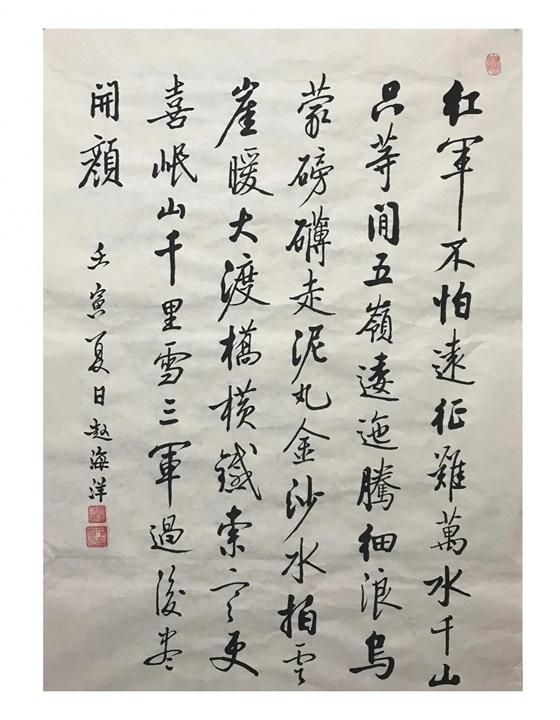 紅軍不怕遠征難萬水千山
只等間五嶺逶迤騰細浪烏
蒙磅礴走泥丸金沙水拍雲
崖暖大渡橋橫鐵索寒更
喜岷山千里雪三軍過後盡
開顏
壬寅夏日赵海洋